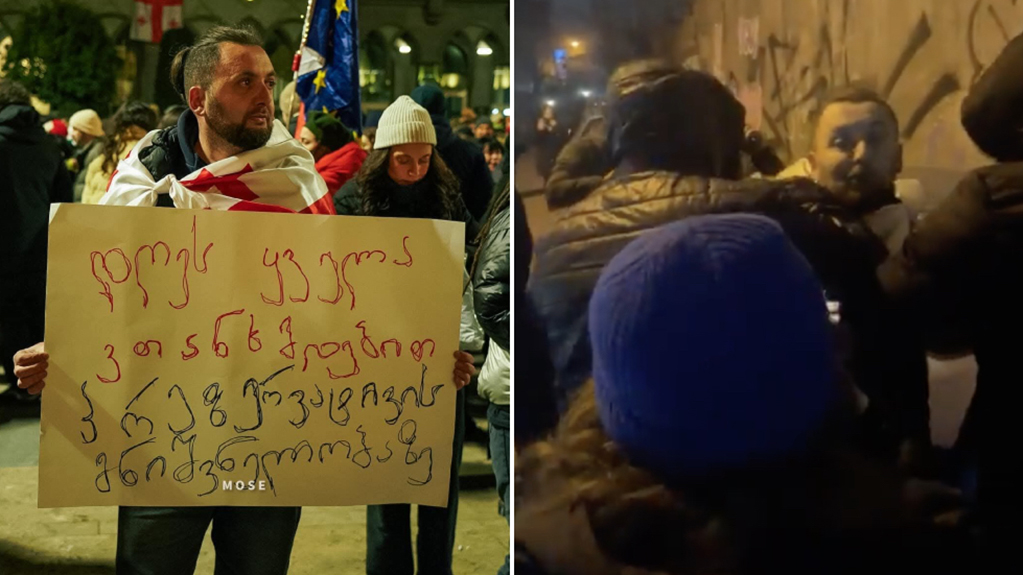 დღეს ყველა
ვთანხმდებით
პრეზერვატივის
მნიშვნელობაზე
MOSE